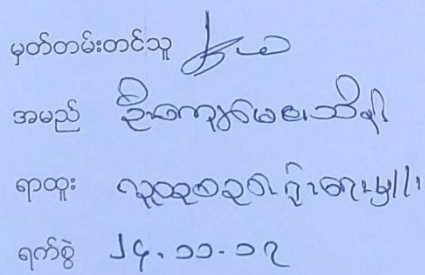 မှတ်တမ်းတင်သူ
အမည် ဦးကျော်မေသိန်း
ရာထူး လူထုစည်းရုံးရေးမှူး
ရက်စွဲ ၂၄.၁၁.၁၇